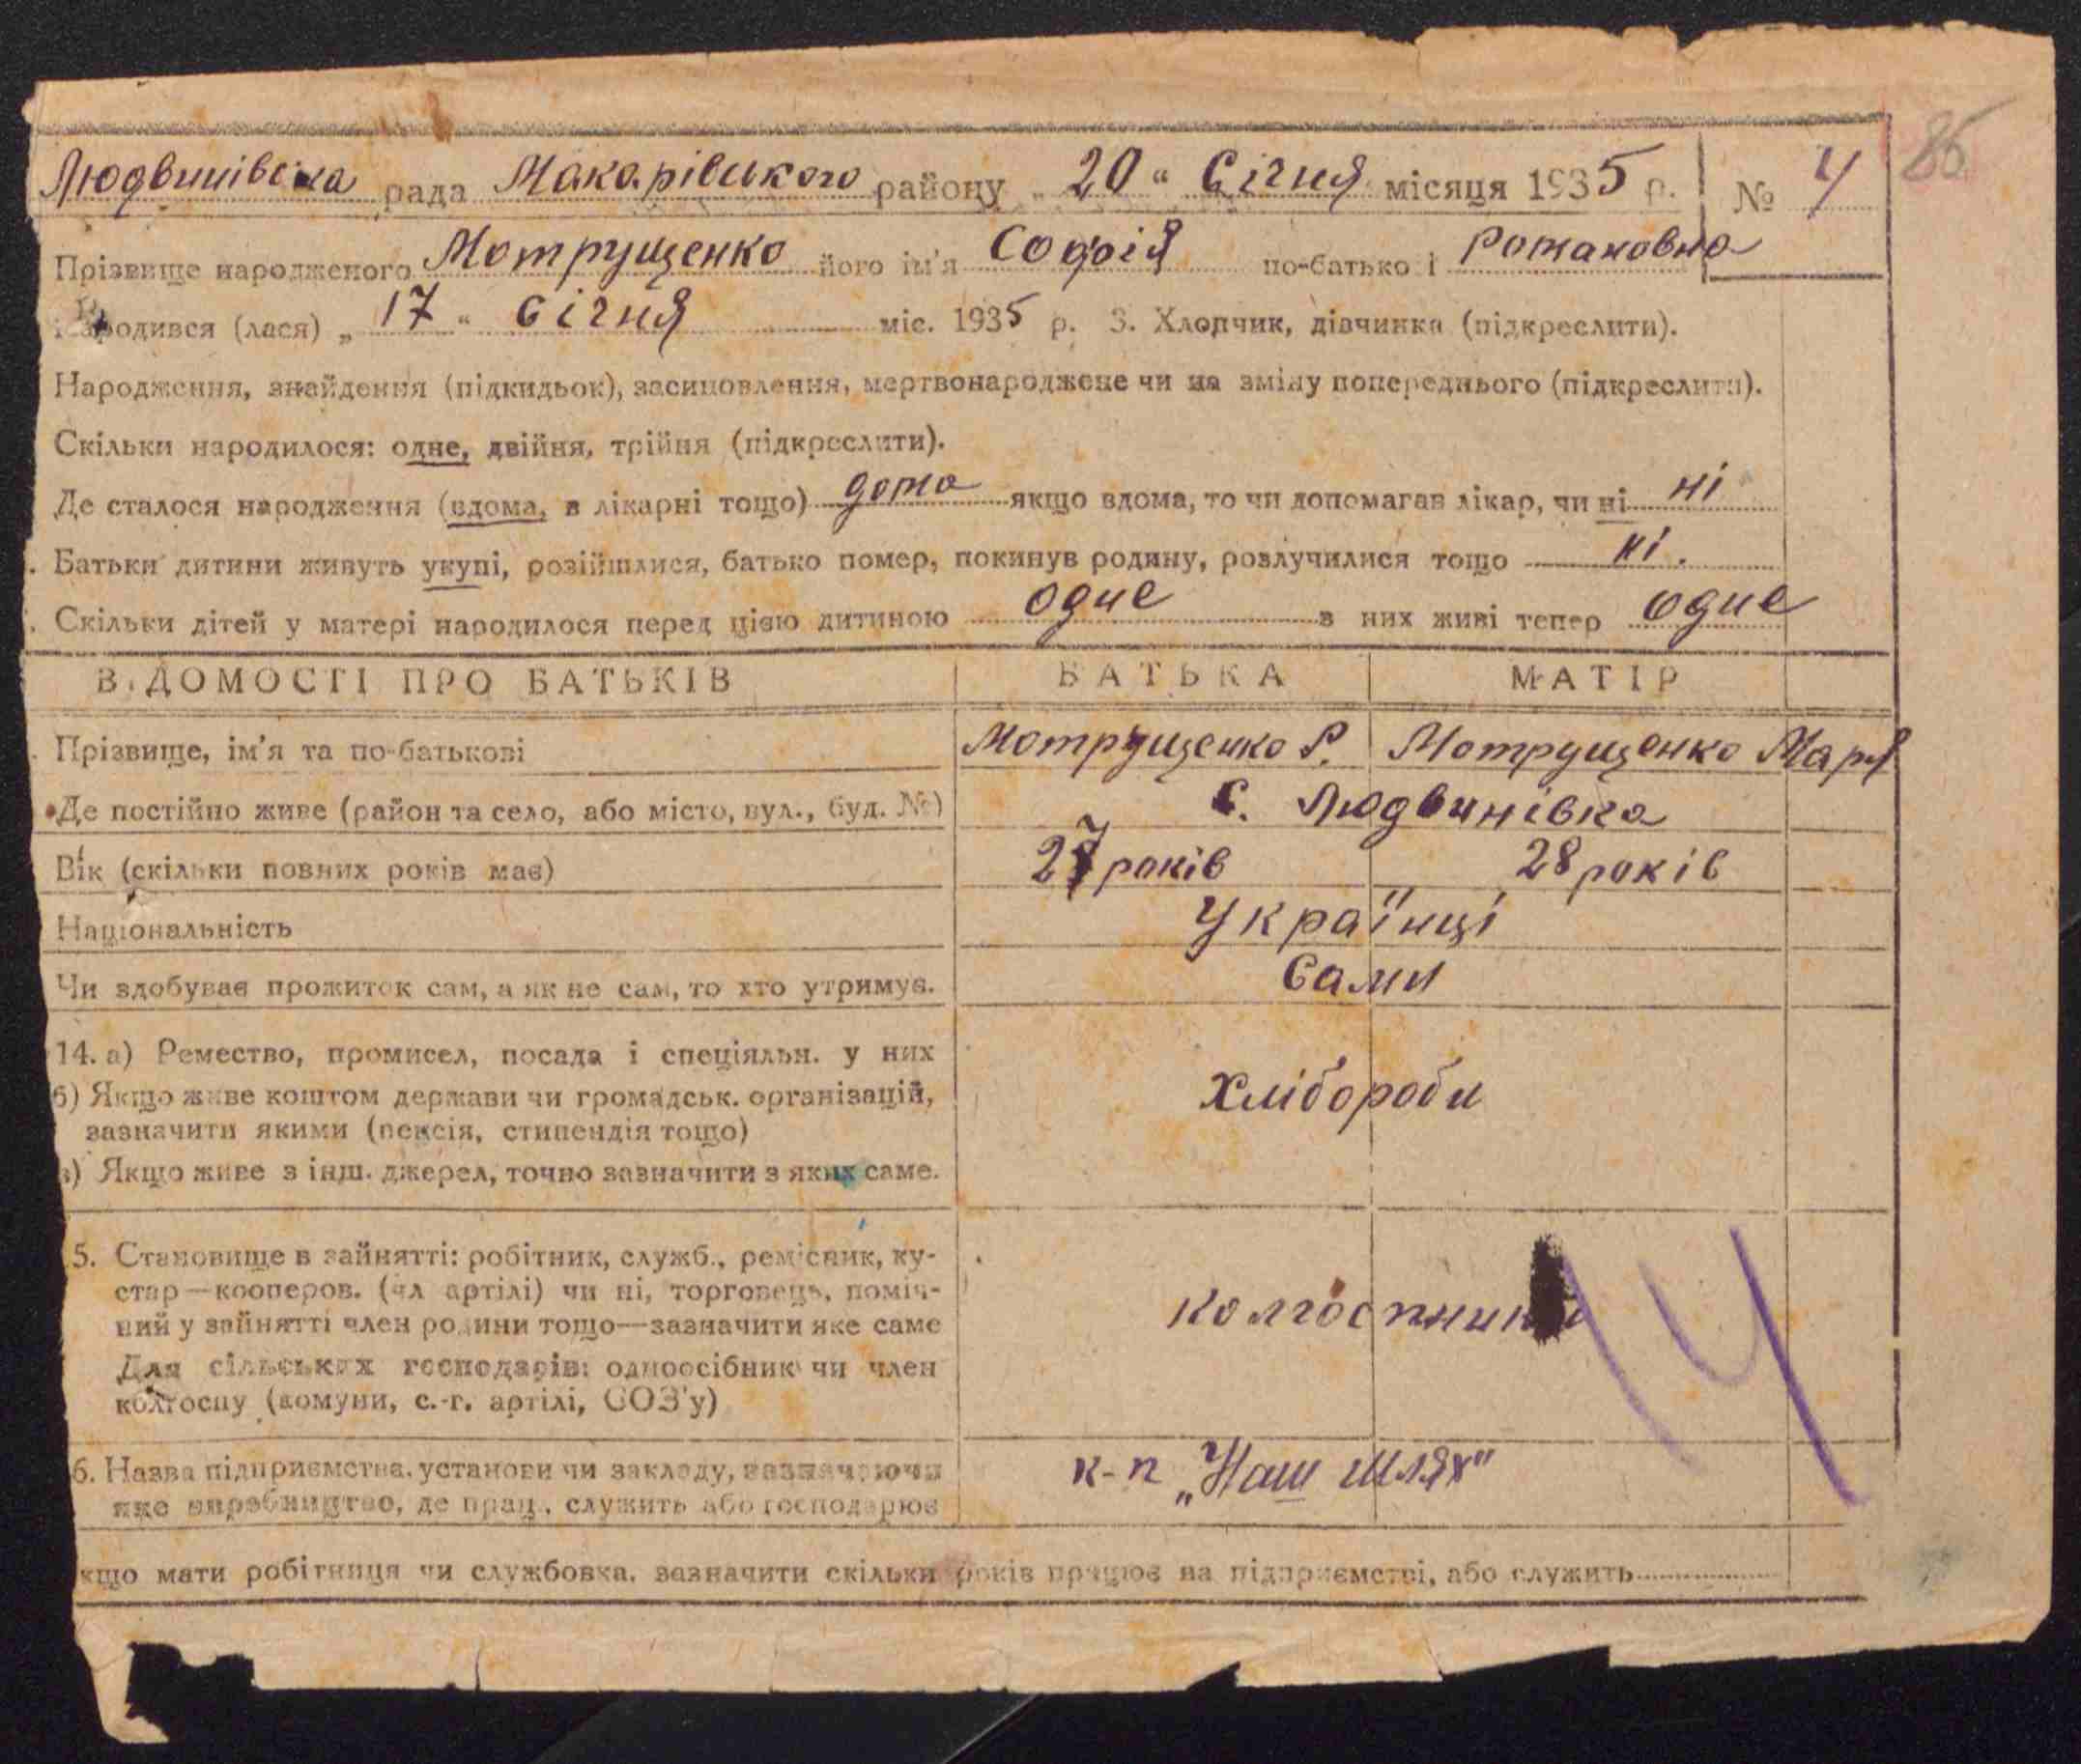 86
Людвинівська рада Макарівського району „ 20 " Січня місяця 1935 р. № 4
Прізвище народженого Мотрущенко його ім'я Софія по-батькові Романовна
Народився (лася) „ 17 " січня міс. 1935 р. 3. Хлопчик, дівчинка (підкреслити).
Народження, знайдення (підкидьок), засиновлення, мертвонароджене чи на зміну попереднього (підкреслити).
Скільки народилося: одне, двійня, трійня (підкреслити).
Де сталося народження (вдома, в лікарні тощо) дома якщо вдома, то чи допомагав лікар, чи ні ні
. Батьки дитини живуть укупі, розійшлися, батько помер, покинув родину, розлучилися тощо ні.
. Скільки дітей у матері народилося перед цією дитиною одне з них живі тепер одне
ВІДОМОСТІ ПРО БАТЬКІВ БАТЬКА МАТІР
Прізвище, ім'я та по-батькові Мотрущенко Р. Мотрущенко Марія
Де постійно живе (район та село, або місто, вул., буд. №) с. Людвинівка
Вік (скільки повних років має) 27 років 28 років
Національність Українці
Чи здобуває прожиток сам, а як не сам, то хто утримує. Сами
14. а) Ремество, промисел, посада і спеціяльн. у них
б) Якщо живе коштом держави чи громадськ. організацій,
зазначити якими (пенсія, стипендія тощо)
Хлібороби
в) Якщо живе з інш. джерел, точно зазначити з яких саме.
5. Становище в зайнятті: робітник, служб., ремісник, ку-
стар—кооперов. (чл артілі) чи ні, торговець, поміч-
ний у зайнятті член родини тощо—зазначити яке саме
Для сільських господарів: одноосібник чи член
колгоспу (комуни, с.-г. артілі, СОЗ'у)
колгоспники
14
6. Назва підприємства, установи чи закладу, зазначаючи
яке виробництво, де прац., служить або господарює
к-п „Наш шлях"
кщо мати робітниця чи службовка, зазначити скільки років працює на підприємстві, або служить